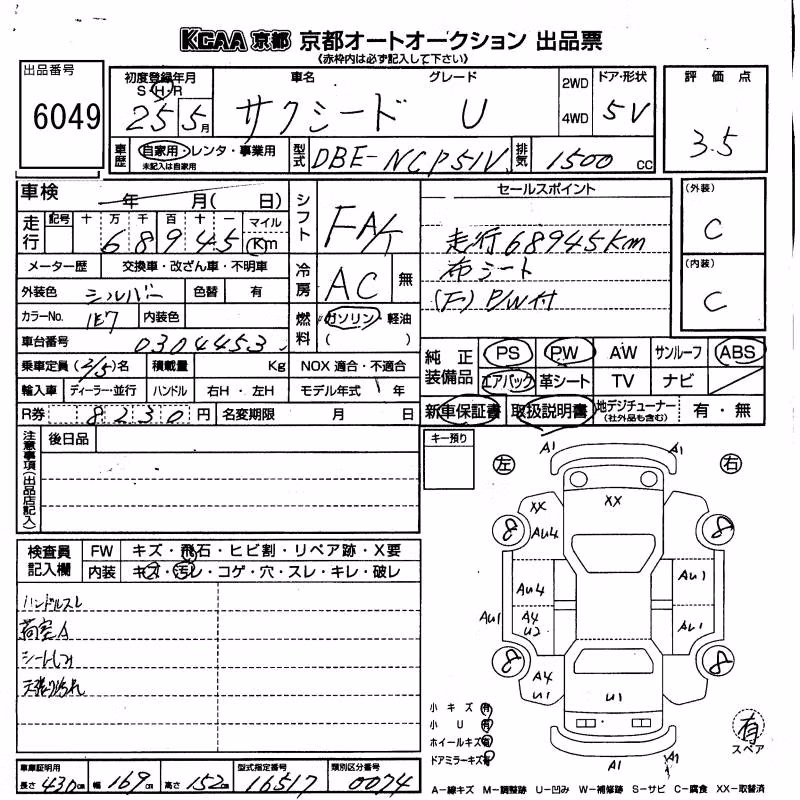 KCAA 京都 京都オートオークション 出品票
《赤枠内は必ず記入して下さい》
出品番号
6049
初度登録年月 車名 グレード
S・H・R
25 5月 サクシード U
2WD
4WD
ドア・形状
5V
評価点
3.5
車歴 自家用・レンタ・事業用
未記入は自家用
型式 DBE-NCP51V
排気 1500 cc
車検 年 月( 日)
走行 記号 十 万 千 百 十 一 マイル
6 8 9 4 5 Km
メーター歴 交換車・改ざん車・不明車
外装色 シルバー 色替 有
カラーNo. 1E7 内装色
車台番号 0304453
乗車定員 (2/5)名 積載量 Kg
輸入車 ディーラー・並行 ハンドル 右H・左H
R券 8230円 名変期限 月 日
シフト FA/T
冷房 AC 無
燃料 ガソリン・軽油
( )
NOX 適合・不適合
モデル年式 年
セールスポイント
走行68945Km
布シート
(F) P/W付
(外装)
C
(内装)
C
純正装備品 PS PW AW サンルーフ ABS
エアバック 革シート TV ナビ
新車保証書 取扱説明書 地デジチューナー(社外品も含む) 有・無
注意事項(出品店記入)
後日品
キー預り
検査員記入欄 FW キズ・飛石・ヒビ割・リペア跡・X要
内装 キズ・汚レ・コゲ・穴・スレ・キレ・破レ
ハンドルスレ
荷室A
シートしみ
天張り汚れ
左 右
A1 A1
XX XX
8 AU4 8
AU4 AU1
AU1 A4 U2 AU1
8 A4 U1 U1 8
A1 A1
小キズ 有
小U 有
ホイールキズ 有
ドアミラーキズ 有
有
スペア
車庫証明用
長さ 430cm 幅 169cm 高さ 152cm
型式指定番号 16517
類別区分番号 0074
A-線キズ M-調整跡 U-凹み W-補修跡 S-サビ C-腐食 XX-取替済